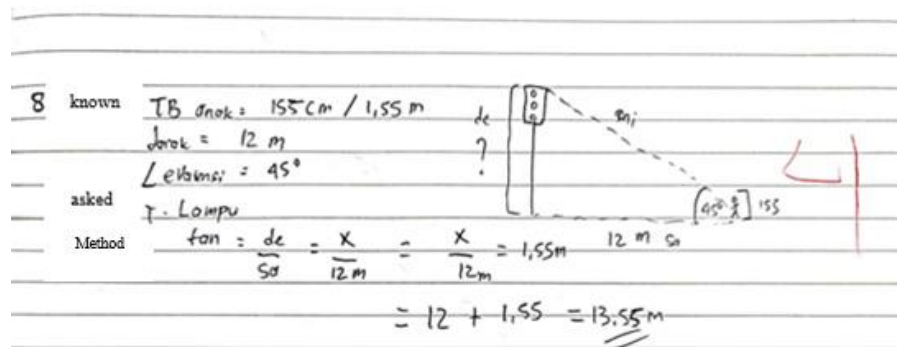 8 known TB anak = 155 cm / 1,55 m
Jarak = 12 m
∠ elevasi = 45°
asked T. Lampu
Method tan = de/sa = x/12 m = x/12 m = 1,55 m
= 12 + 1,55 = 13,55 m
de
?
mi
45°
155
12 m sa
4